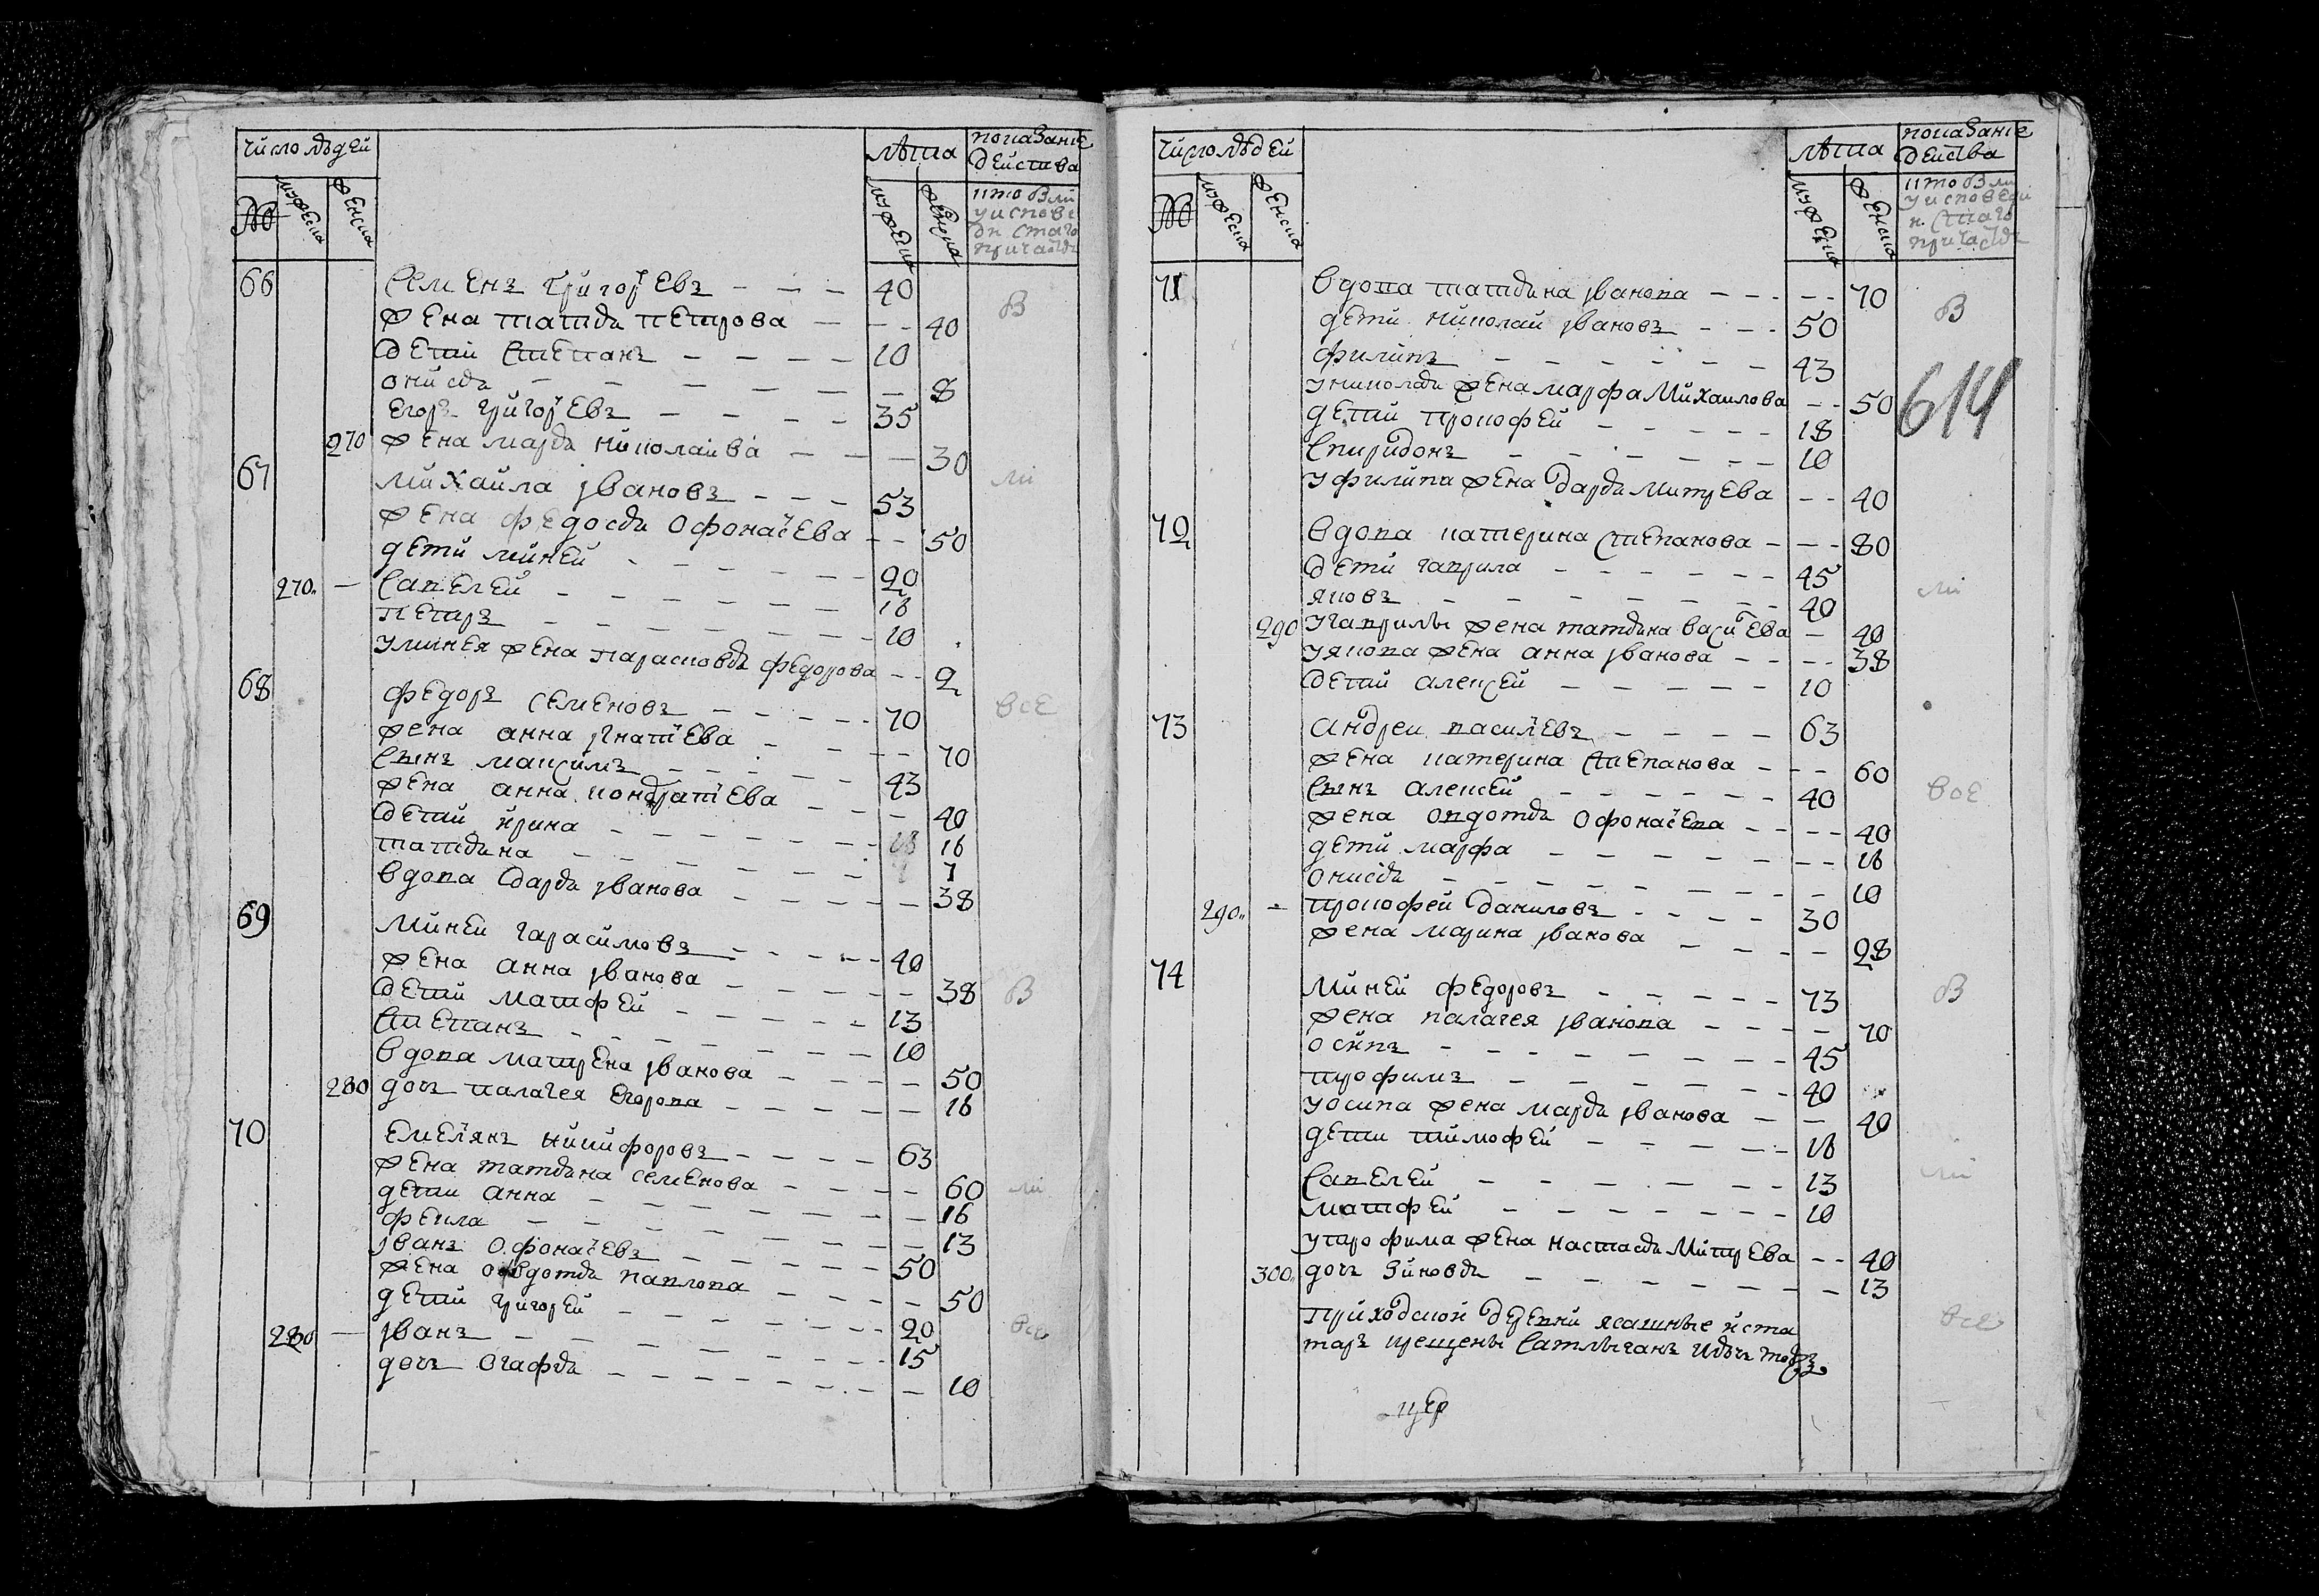 число людей
лѣта
показанiе
действа
№
мужеска
женска
мужеска
женска
кто были
у испове
ди и стаго
причастiя
66 Семенъ григорьевъ 40
жена татья петрова 40
дети степанъ 10
онисья 8
егоръ григорьевъ 35
270 жена марья николаива 30
67 михаила ивановъ 53
жена федосья офонасьева 50
дети миней 20
270 савелей 16
петръ 10
у минея жена парасковья федорова 2
68 федоръ семеновъ 70
жена анна игнатьева 70
сынъ максимъ 43
жена анна кондратьева 40
дети ирина 16
татьяна 7
вдова дарья иванова 38
69 миней гарасимовъ 40
жена анна иванова 38
дети матфей 13
степанъ 10
вдова матрена иванова 50
280 дочь палагея егорова 16
70 емельянъ никифоровъ 63
жена татьяна семенова 60
дети анна 16
фекла 13
иванъ офонасьевъ 50
жена овдотья павлова 50
дети григорей 20
280 иванъ 15
дочь огафья 10
В
ли
все
В
ли
все
число людей
лѣта
показанiе
действа
№
мужеска
женска
мужеска
женска
кто были
у исповеди
и стаго
причастiя
71 вдова татьяна иванова 70
дети николай ивановъ 50
филипъ 43
у николая жена марфа михаилова 50
дети прокофей 18
спиридонъ 10
у филипа жена дарья митрева 40
72 вдова катерина степанова 80
дети гаврила 45
яковъ 40
290 у гаврилы жена татьяна васильева 40
у якова жена анна иванова 38
дети алексей 10
73 андреи васильевъ 63
жена катерина степанова 60
сынъ алексей 40
жена овдотья офонасьева 40
дети марфа 16
онисья 10
290 прокофей даниловъ 30
жена марина иванова 28
74 миней федоровъ 73
жена палагея иванова 70
осипъ 45
трофимъ 40
у осипа жена марья иванова 40
дети тимофей 16
савелей 13
матфей 10
у трофима жена настасья митрева 40
300 дочь зиновья 13
приходской деревни ясашные иста
таръ крещены сатлыганъ
цер
В
614
ли
все
В
ли
все